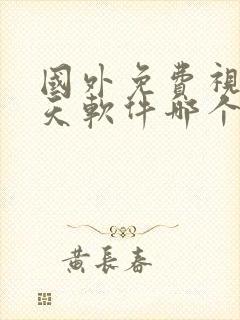 國外免費視
天軟件哪个
黄長春